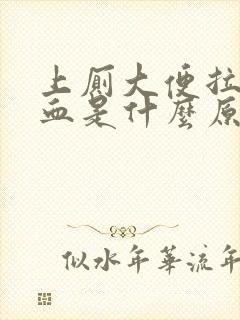 上厕大便拉
血是什麼原
似水年華流年